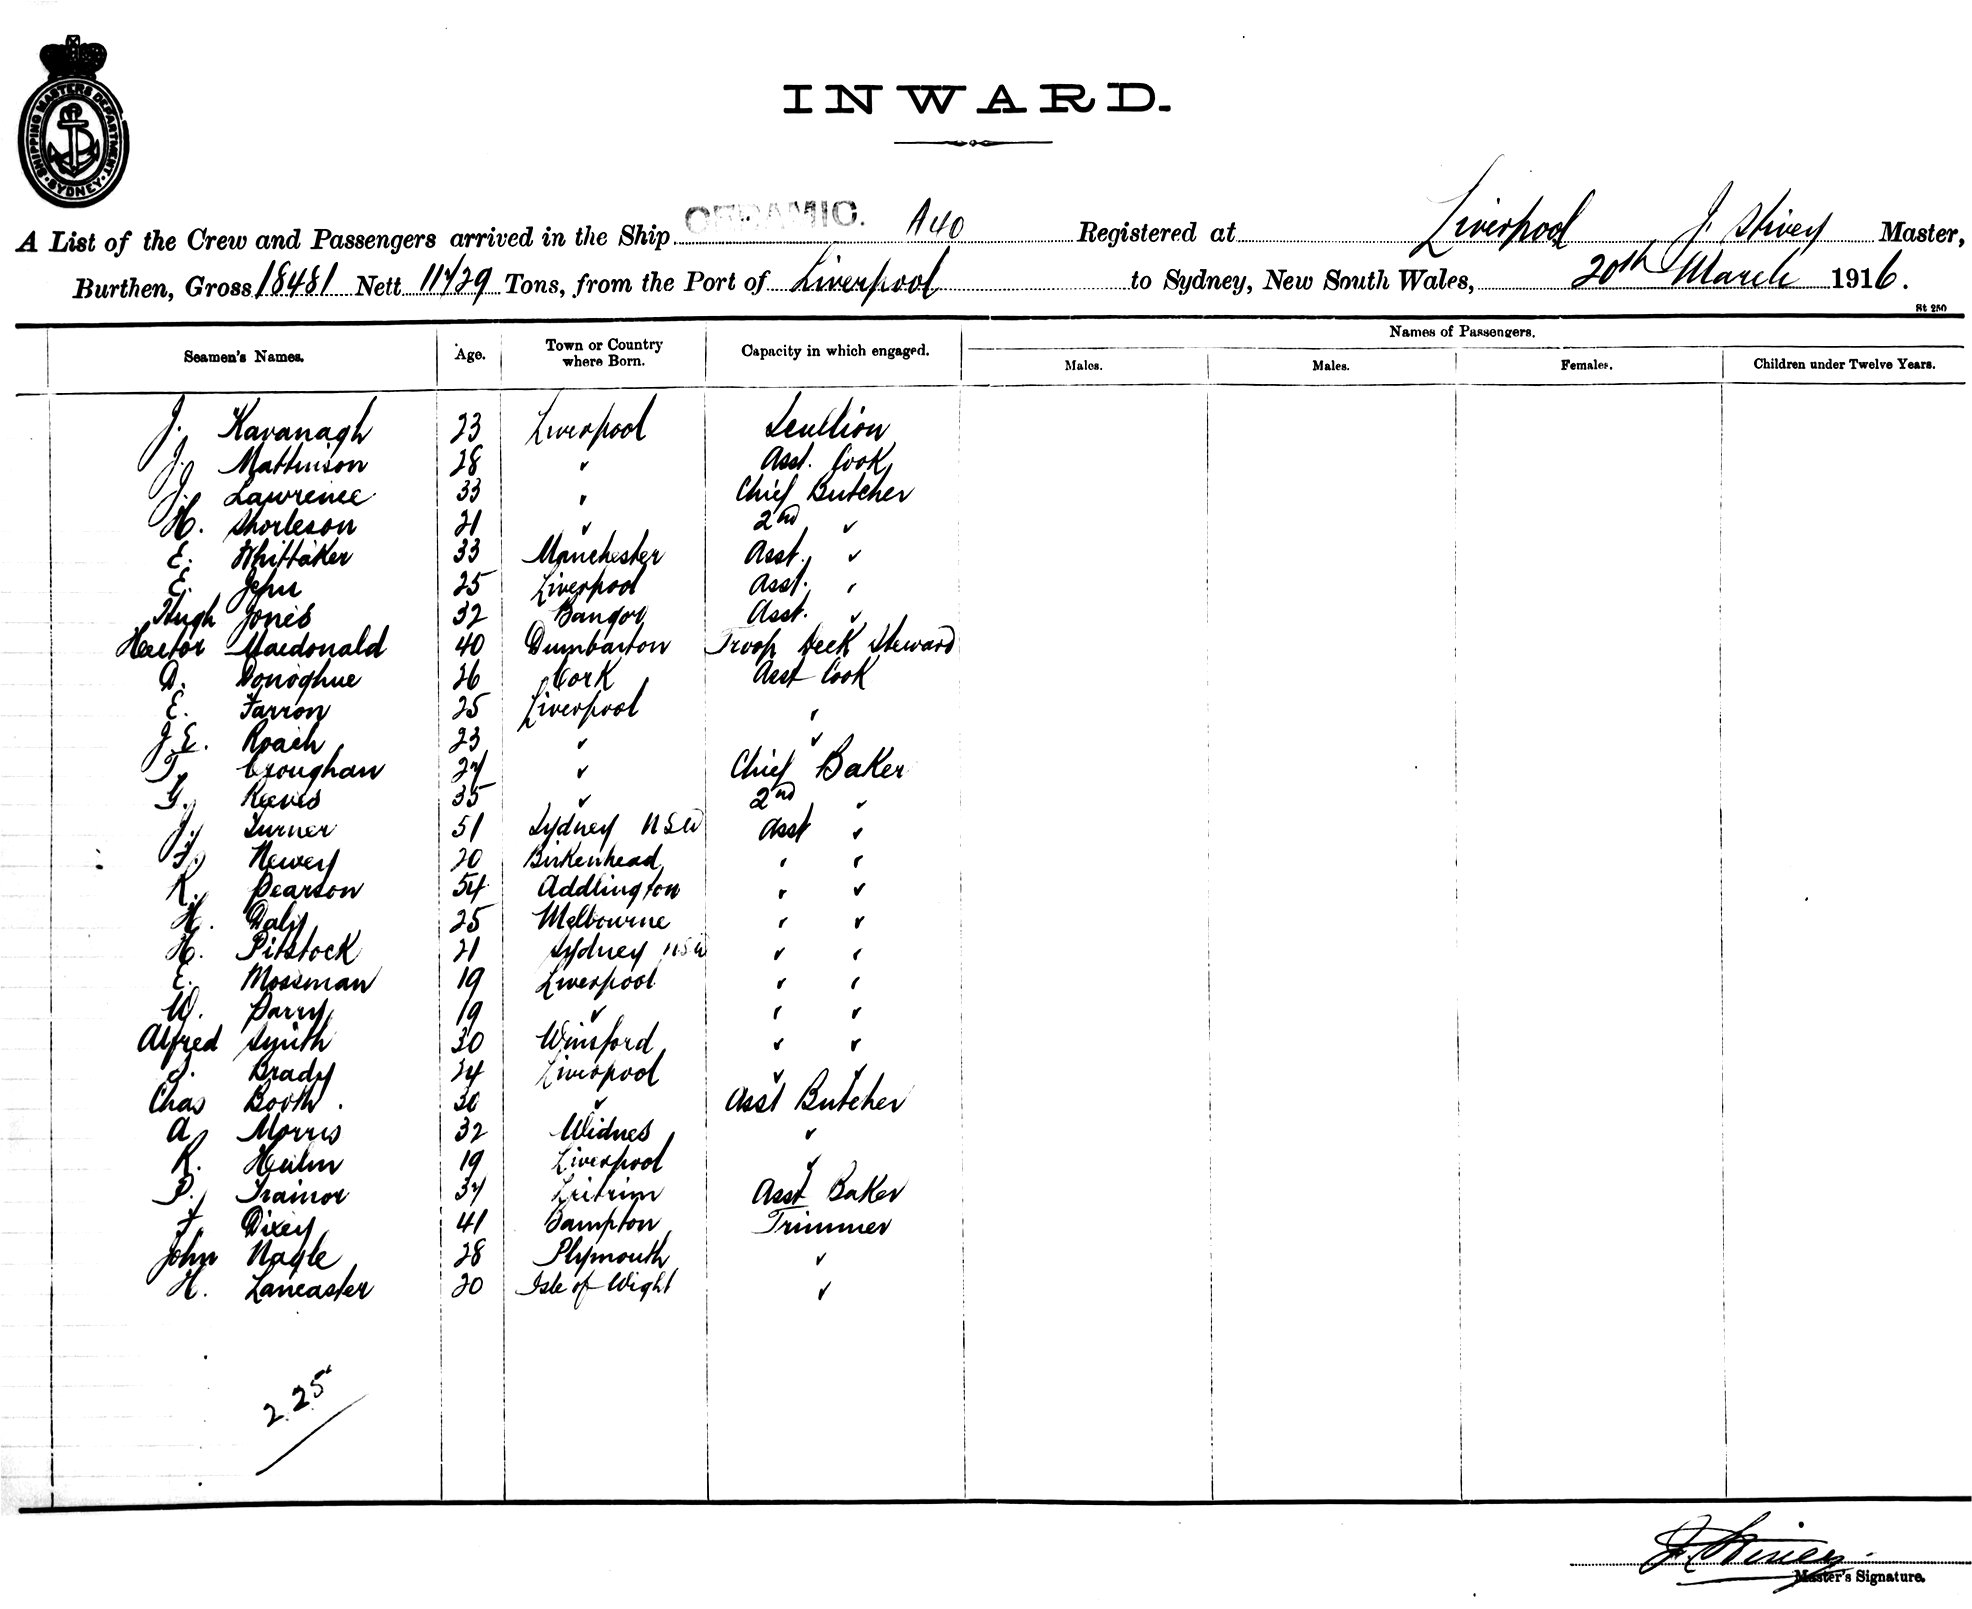 SHIPPING MASTERS DEPARTMENT
SYDNEY
INWARD.
A List of the Crew and Passengers arrived in the Ship CERAMIC. A40 Registered at Liverpool J. Stivey Master,
Burthen, Gross 18481 Nett 11729 Tons, from the Port of Liverpool to Sydney, New South Wales, 20th March 1916.
St 250
Seamen's Names. Age. Town or Country where Born. Capacity in which engaged. Names of Passengers.
Males. Males. Females. Children under Twelve Years.
J. Kavanagh 23 Liverpool Scullion
J. Mattinson 28 " Asst. Cook
J. Lawrence 33 " Chief Butcher
H. Shorleson 21 " 2nd "
E. Whittaker 33 Manchester Asst. "
E. John 25 Liverpool Asst. "
Hugh Jones 32 Bangor Asst. "
Hector Macdonald 40 Dumbarton Troop Deck Steward
D. Donoghue 26 Cork Asst Cook
E. Farron 25 Liverpool "
J.E. Roach 23 " "
T. Croughan 27 " Chief Baker
G. Reeves 35 " 2nd "
J. Turner 51 Sydney NSW Asst "
F. Newey 20 Birkenhead " "
R. Pearson 54 Addlington " "
H. Daly 25 Melbourne " "
H. Pitstock 21 Sydney NSW " "
E. Mossman 19 Liverpool " "
W. Parry 19 " " "
Alfred Smith 30 Winsford " "
J. Brady 24 Liverpool " "
Chas Booth. 30 " Asst Butcher
A. Morris 32 Widnes "
R. Hulm 19 Liverpool "
P. Trainor 37 Leitrim Asst Baker
F. Dixey 41 Bampton Trimmer
John Nagle 28 Plymouth "
H. Lancaster 20 Isle of Wight "
225
J. Stivey
Master's Signature.